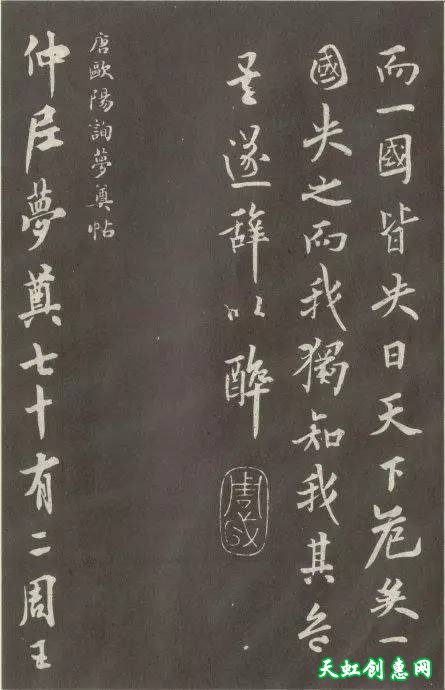 而一國皆失日天下危矣一
國失之而我獨知我其危
矣遂辭以醉
唐歐陽詢夢奠帖
仲尼夢奠七十有二周王
天虹创惠网